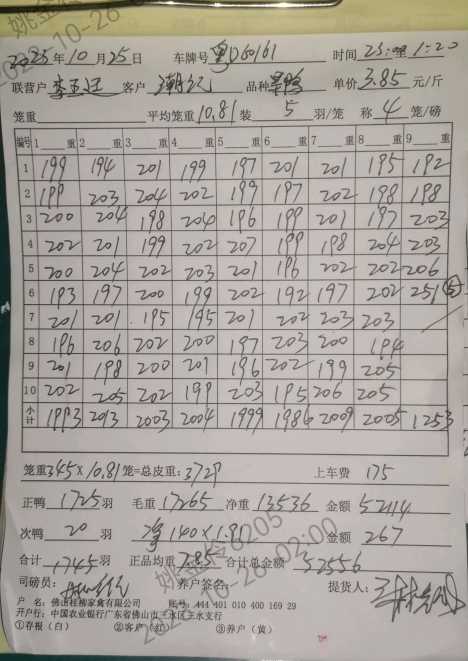 2025年10月25日 车牌号 粤D60161 时间 23:00至1:20
联营户 客户 潮记 品种 单价 3.85 元/斤
笼重 平均笼重 10.81 装 5 羽/笼 称 4 笼/磅
编号 1 重 2 重 3 重 4 重 5 重 6 重 7 重 8 重 9 重
1 199 194 201 199 197 201 201 195 192
2 199 203 204 202 199 197 202 198 198
3 200 204 198 204 196 199 201 197 203
4 202 201 199 202 207 199 198 204 203
5 200 204 202 203 201 196 202 202 206
6 193 197 200 199 202 192 197 202 251 ⑤
7 201 201 195 195 201 202 203 203
8 196 206 202 200 197 203 200 194
9 201 198 200 201 196 202 199 205
10 202 205 202 199 203 195 206 205
小计 1993 2013 2003 2004 1999 1986 2009 2005 1253
笼重 345×10.81 笼=总皮重: 3729 上车费 175
正鸭 1725 羽 毛重 17265 净重 13536 金额 52114
次鸭 20 羽 净140×1.91 金额 267
合计 1745 羽 正品均重 7.85 合计总金额 52556
司磅员: 养户签名: 提货人:
户 名: 佛山桂柳家禽有限公司 账号: 444 401 010 400 169 29
开户行: 中国农业银行广东省佛山市三水区三水支行
①存根（白） ②客户（红） ③养户（黄）